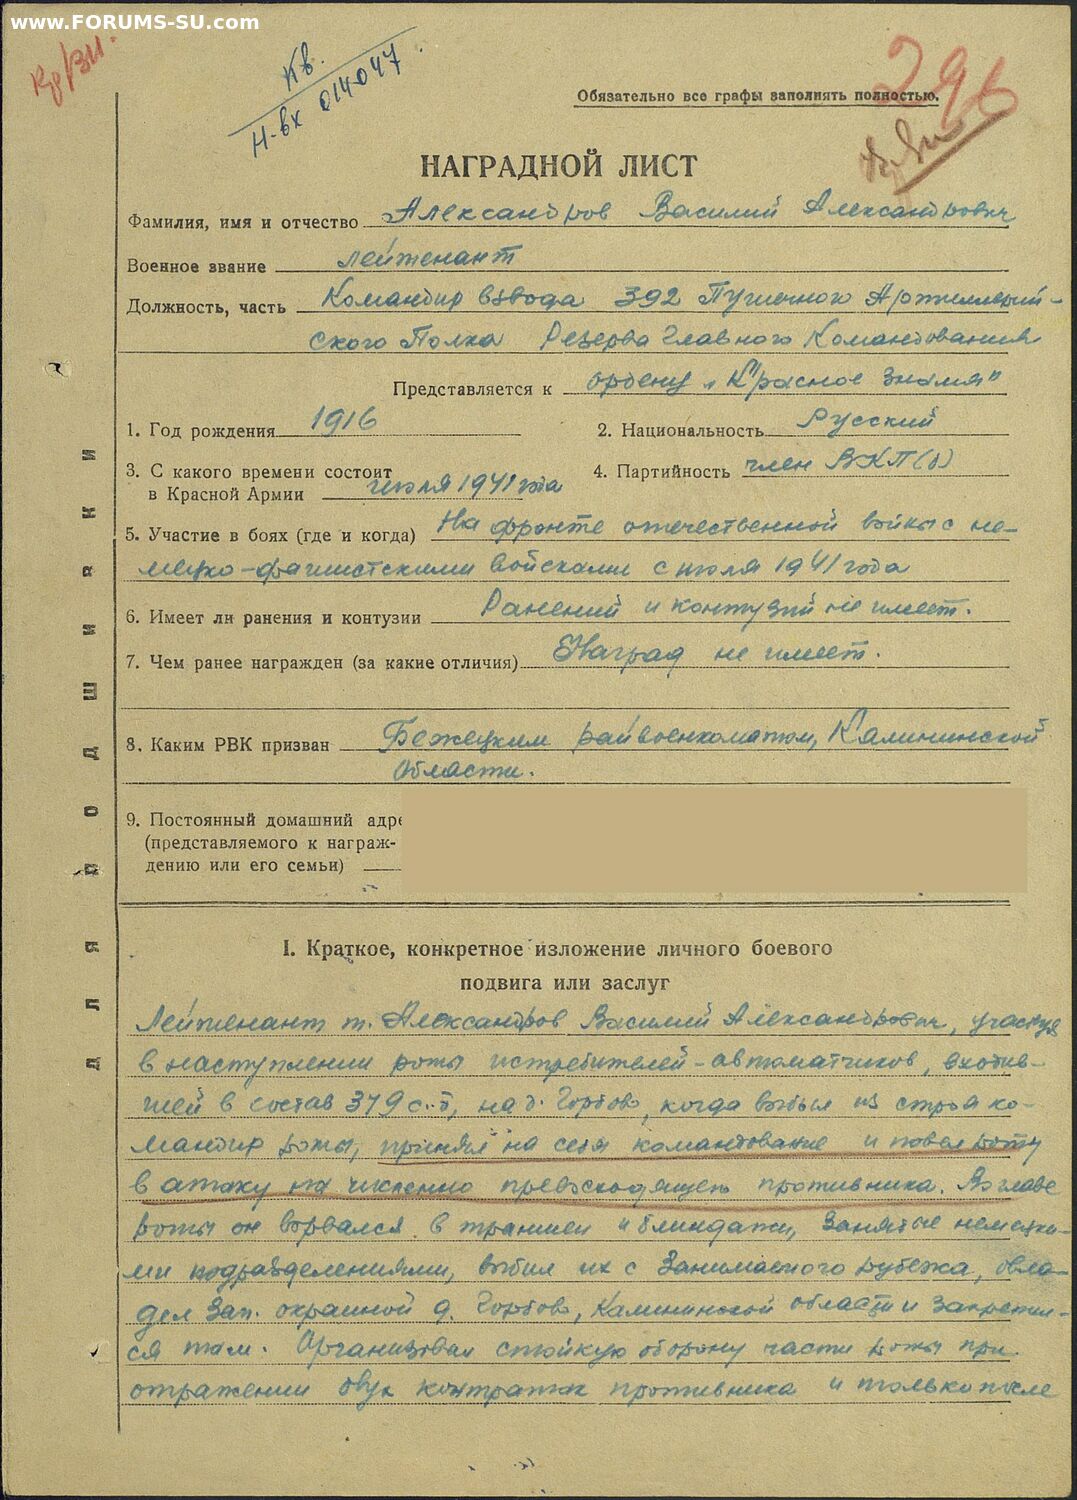 www.FORUMS-SU.com
Кв.
Н-вх 014047
296
Обязательно все графы заполнять полностью.
НАГРАДНОЙ ЛИСТ
Фамилия, имя и отчество Александров Василий Александрович
Военное звание лейтенант
Должность, часть Командир взвода 392 Пушечного Артиллерий-
ского Полка Резерва Главного Командования
Представляется к ордену „Красное Знамя"
1. Год рождения 1916
2. Национальность Русский
3. С какого времени состоит
в Красной Армии июля 1941 года
4. Партийность член ВКП(б)
5. Участие в боях (где и когда) На фронте отечественной войны с не-
мецко-фашистскими войсками с июля 1941 года
6. Имеет ли ранения и контузии Ранений и контузий не имеет.
7. Чем ранее награжден (за какие отличия) Наград не имеет.
8. Каким РВК призван Бежецким райвоенкоматом, Калининской
области.
9. Постоянный домашний адре
(представляемого к награж-
дению или его семьи)
ДЛЯ ПОДШИВКИ
I. Краткое, конкретное изложение личного боевого
подвига или заслуг
Лейтенант т. Александров Василий Александрович, участвуя
в наступлении роты истребителей-автоматчиков, входив-
шей в состав 379 с.д, на д. Горбово, когда выбыл из строя ко-
мандир роты, принял на себя командование и повел роту
в атаку на численно превосходящего противника. Во главе
роты он ворвался в траншеи и блиндажи, занятые немецки-
ми подразделениями, выбил их с занимаемого рубежа, овла-
дел зап. окраиной д. Горбово, Калининской области и закрепил-
ся там. Организовал стойкую оборону части роты при
отражении двух контратак противника и только после